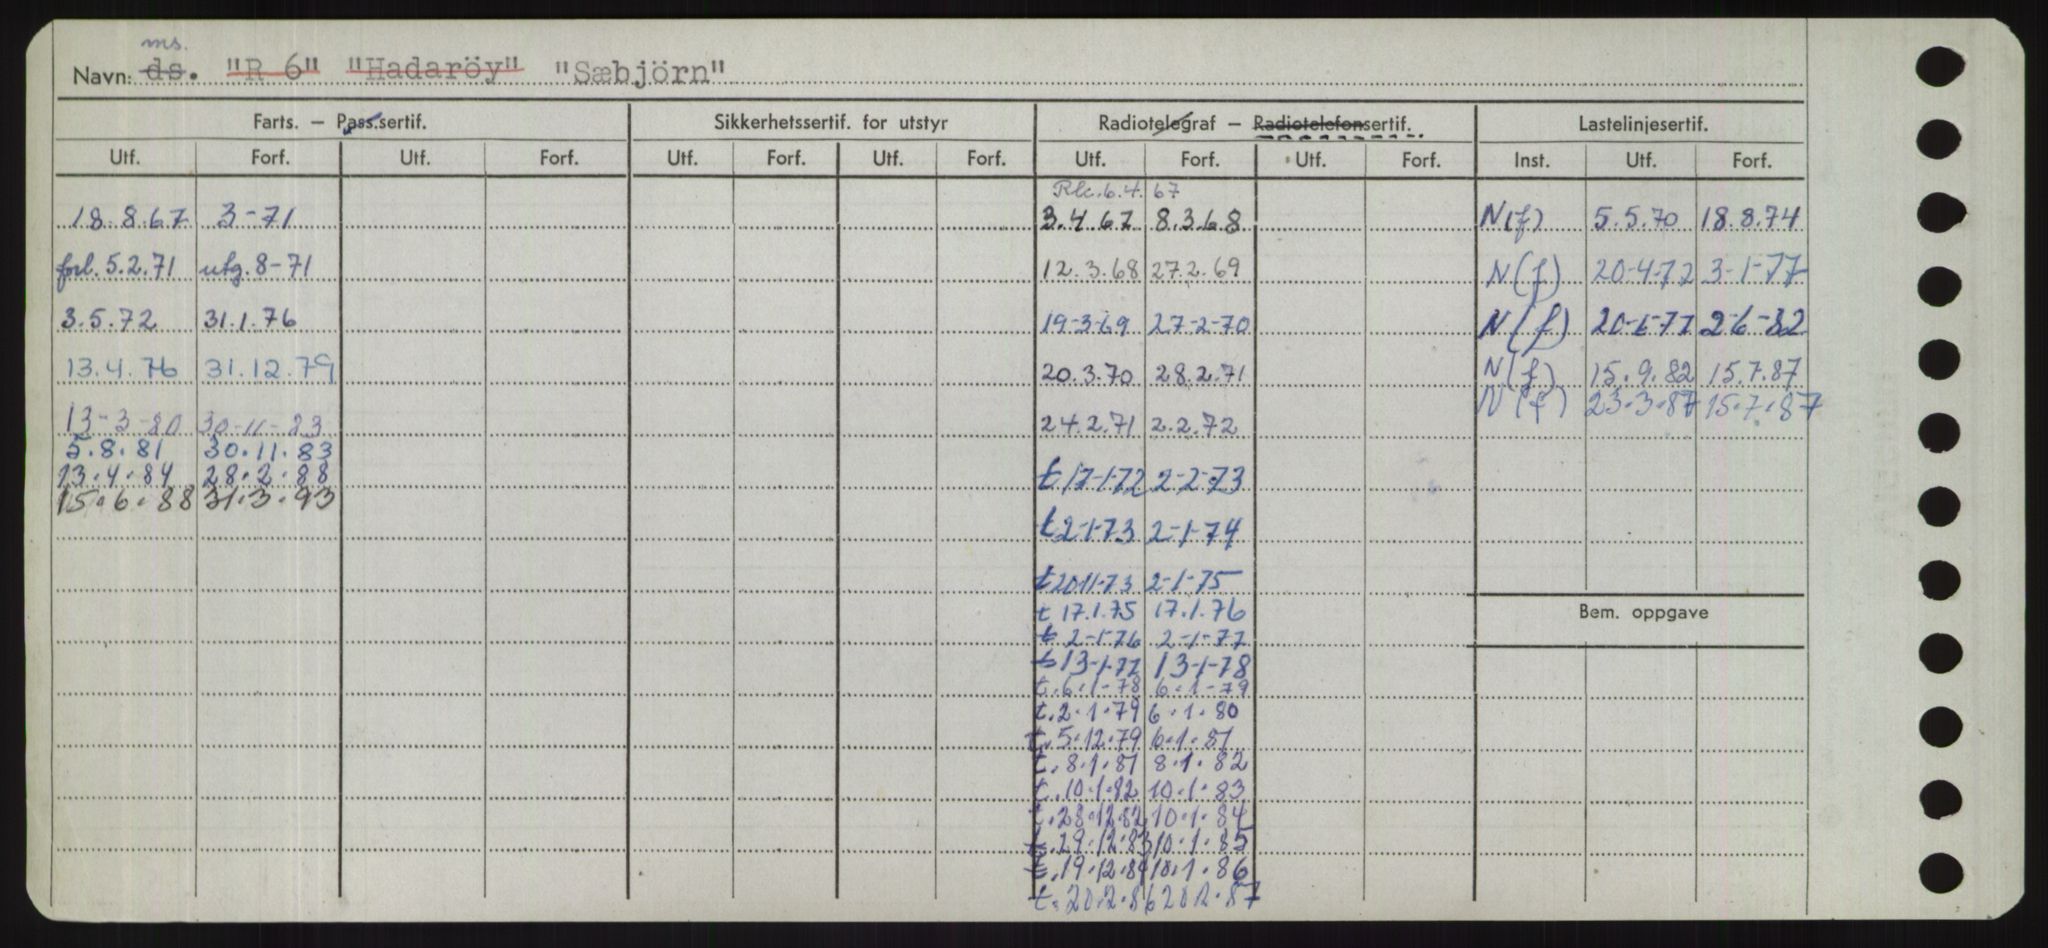 ms.
Navn: ds. "R 6" "Hadaröy" "Sæbjörn"
Farts. — Pass.sertif. Sikkerhetssertif. for utstyr Radiotelegraf — Radiotelefonsertif. Lastelinjesertif.
Utf. Forf. Utf. Forf. Utf. Forf. Utf. Forf. Utf. Forf. Utf. Forf. Inst. Utf. Forf.
6.4.67
18.8.67 3-71 3.4.67 8.3.68 N(f) 5.5.70 18.8.74
forl. 5.2.71 utg. 8-71 12.3.68 27.2.69 N(f) 20-4-72 3-1-77
3.5.72 31.1.76 19-3-69 27-2-70 N(f) 2-6-82
13.4.76 31.12.79 20.3.70 28.2.71 N(f) 15.9.82 15.7.87
N(f) 23.3.87 15.7.87
13-3-80 30-11-83 24.2.71 2.2.72
5.8.81 30.11.83
13.4.84 28.2.88 t 17-1-72 2-2-73
15.6.88 31.3.93
t 2-1-73 2-1-74
t 20-11-73 2-1-75
t 17.1.75 17.1.76 Bem. oppgave
t 2-1-76 2-1-77
t 13-1-77 13-1-78
t. 6.1-78 6.1-79
t. 2.1.79 6.1.80
t. 5.12.79 6.1.81
t. 8.1.81 8.1.82
t. 10.1.82 10.1.83
t. 28.12.82 10.1.84
t. 29.12.83 10.1.85
t. 19.12.84 10.1.86
t. 20.2.86 20.2.87